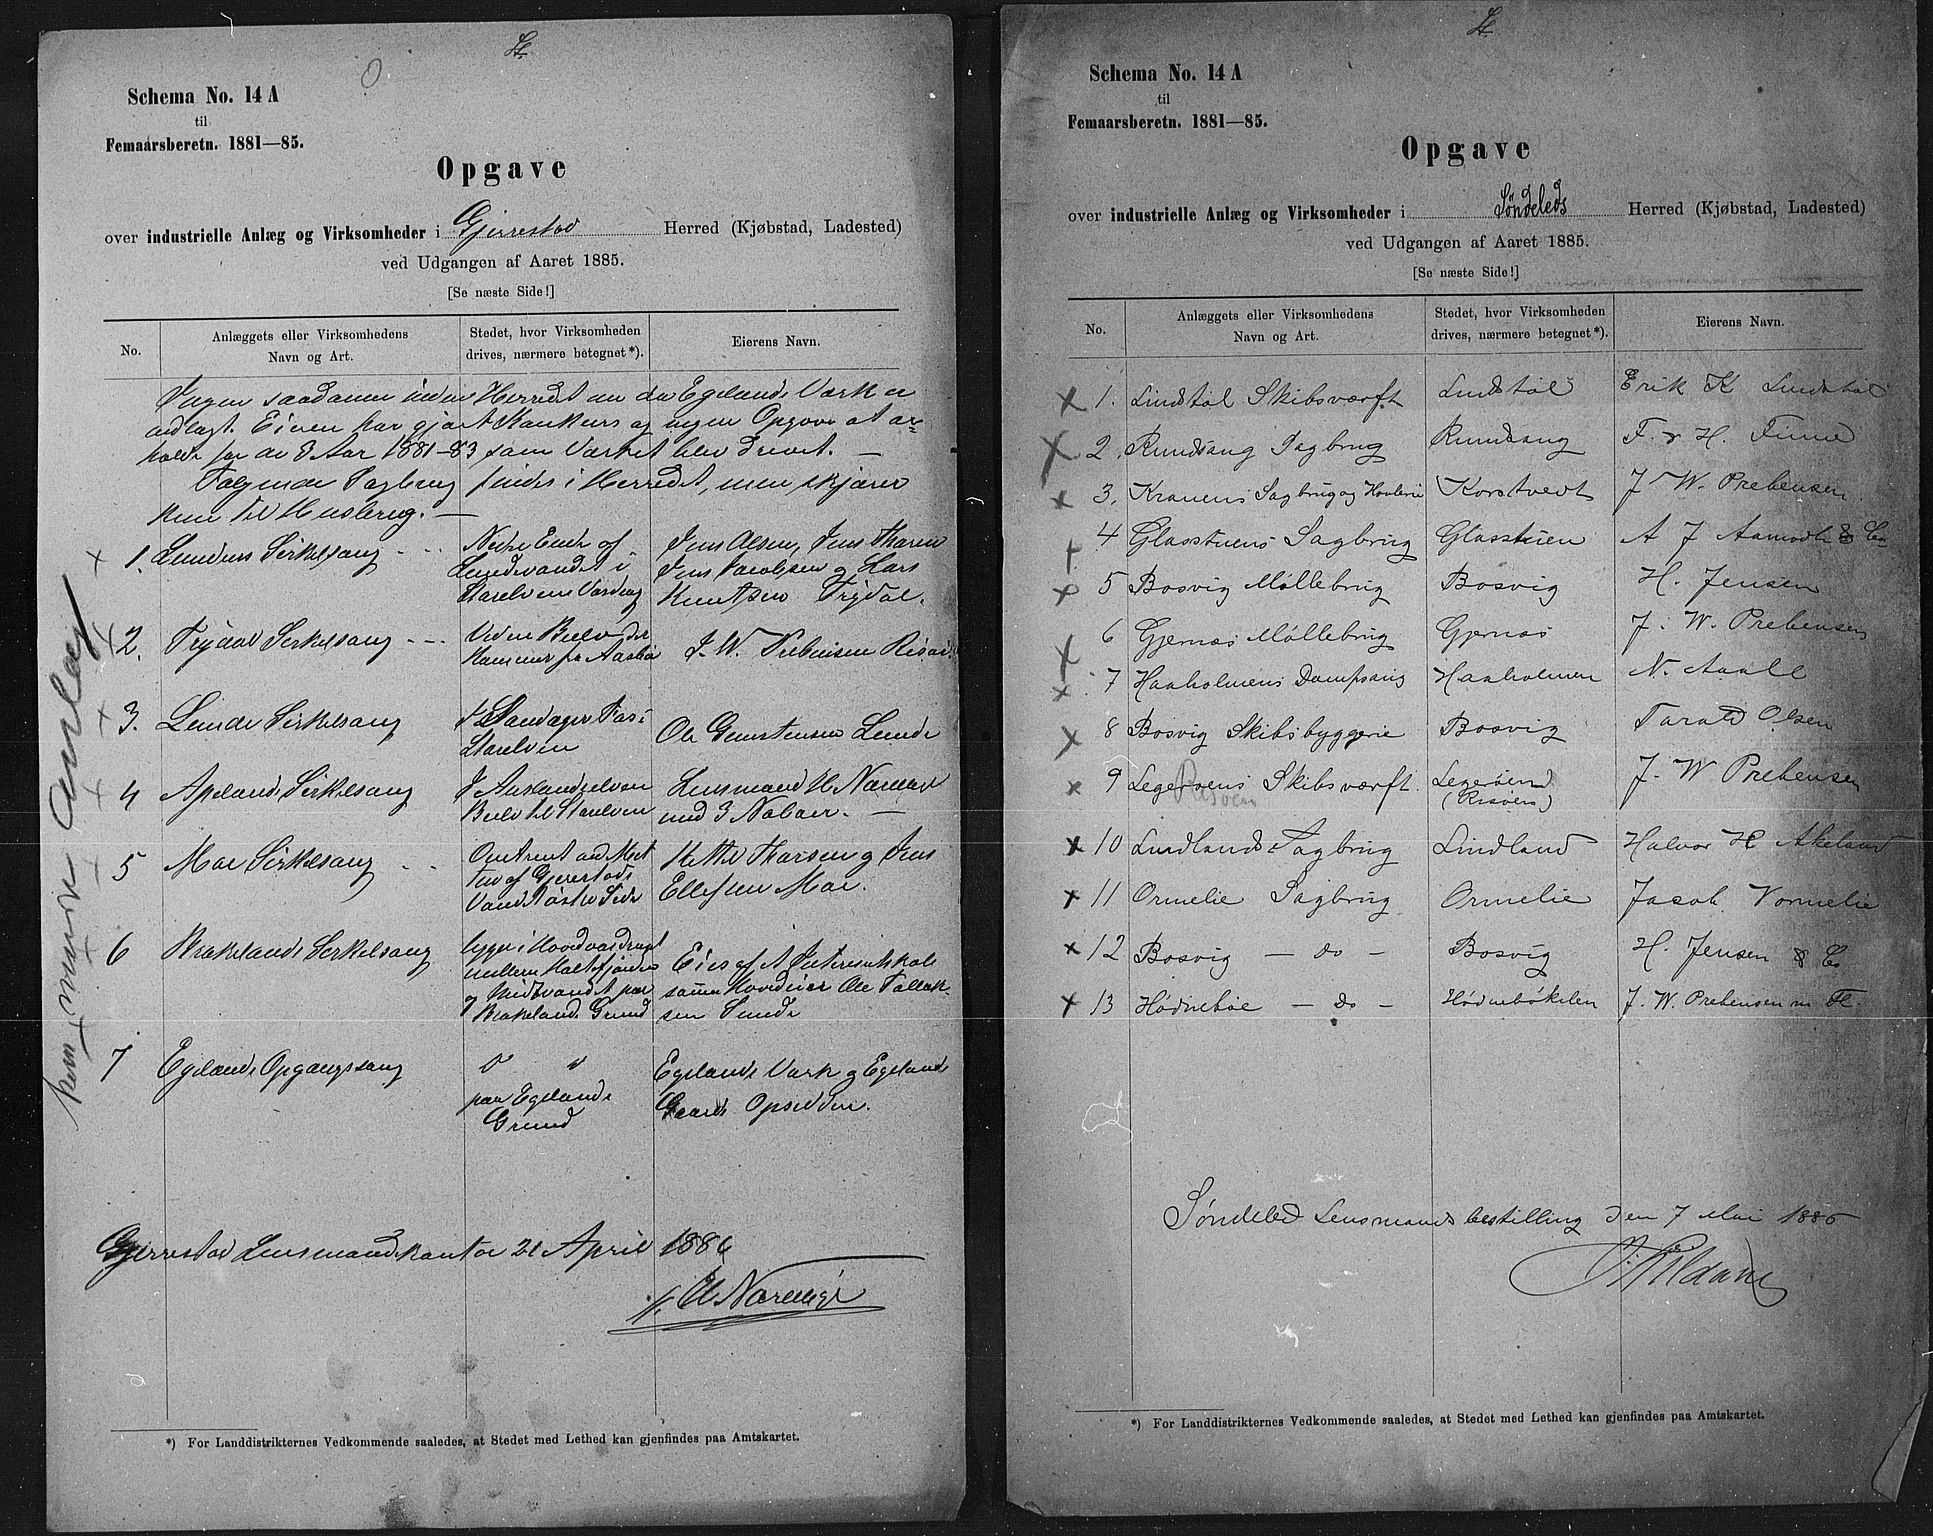 St.
Schema No. 14 A
til
Femaarsberetn. 1881—85.
Opgave
over industrielle Anlæg og Virksomheder i Gjerrestad Herred (Kjøbstad, Ladested)
ved Udgangen af Aaret 1885.
[Se næste Side!]
No.
Anlæggets eller Virksomhedens
Navn og Art.
Stedet, hvor Virksomheden
drives, nærmere betegnet*).
Eierens Navn.
Ingen saadanne inden Herredet da Egelands Værk er
nedlagt. Eieren har gjort Konkurs og ingen Opgave at er-
holde for de 3 Aar 1881-83 som Værket blev drevet. —
Følgende Sagbrug findes i Herredet, men skjærer
kun til Husbrug. —
kun mindre Anlæg
1. Lundens Sirkelsaug
Nedre Ende af
i
Storelvens Vasdrag
Jens Olsen, Jens Thoren
Jens Jacobsen og Lars
Knutsen Trydal.
2. Trydal Sirkelsaug
J. W. Prebensen Risør
3. Lunde Sirkelsaug
Storelven
Ole Gunstensen Lunde
4 Apeland Sirkelsaug
I Aaslandselven
Storelven
Lensmand H. Næreveg
med 3 Naboer. —
5 Moe Sirkelsaug
Omtrent ved Mid-
ten af Gjerestads
Vand Østre Side
Kittil Tharsen og Jens
Ellefsen Moe.
6 Brokelands Sirkelsaug
ligger i Hovedvasdraget
mellem Holtefjorden
og Midtvandet paa
Brokelands Grund
Eies af et Interesentskab
samme Hovedeier Ole Tallak-
sen Sunde
7 Egelands Opgangssaug
" "
paa Egelands
Grund
Egelands Værk og Egelands
Gaards Opsidder.
Gjerrestad Lensmandskontor 21 April 1886
H. Næreveg
*) For Landdistrikternes Vedkommende saaledes, at Stedet med Lethed kan gjenfindes paa Amtskartet.
St.
Schema No. 14 A
til
Femaarsberetn. 1881—85.
Opgave
over industrielle Anlæg og Virksomheder i Søndeleds Herred (Kjøbstad, Ladested)
ved Udgangen af Aaret 1885.
[Se næste Side!]
No.
Anlæggets eller Virksomhedens
Navn og Art.
Stedet, hvor Virksomheden
drives, nærmere betegnet*).
Eierens Navn.
1. Lindstøl Skibsværft Lindstøl Erik K Lindstøl
2. Rundsang Sagbrug Rundsang F. & H. Finne
3. Kranens Sagbrug og Høvleri Korstvedt J W. Prebensen
4 Glasstuens Sagbrug Glasstuen A J Aamodt & Co
5 Bosvig Møllebrug Bosvig H. Jensen
6 Gjernæs Møllebrug Gjernæs J. W. Prebensen
7 Haaholmens Dampsaug Haaholmen N. Aall
8 Bosvig Skibsbyggerie Bosvig Tarald Olsen
9 Legerøens Skibsværft. Legerøen J. W Prebensen
Risøen (Risøen)
10 Lindland Sagbrug Lindland Halvor H Akeland
11 Ormelie Sagbrug Ormelie Jacob Vormelie
12 Bosvig — do — Bosvig H. Jensen & Co
13 Hødnebøe — do — Hødnebøkilen J. W. Prebensen m Fl.
Søndeled Lensmandsbestilling den 7 Mai 1886
*) For Landdistrikternes Vedkommende saaledes, at Stedet med Lethed kan gjenfindes paa Amtskartet.